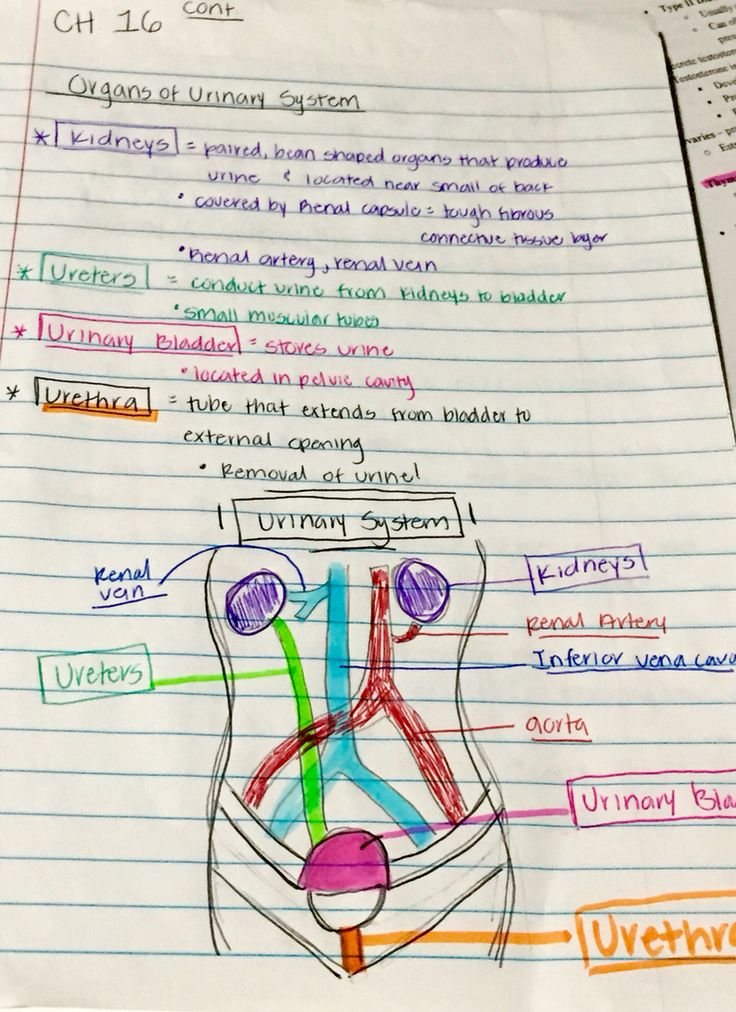 CH 16 cont
Organs of Urinary System
* Kidneys = paired, bean shaped organs that produce
urine & located near small of back
• covered by Renal capsule = tough fibrous
connective tissue layer
• Renal artery, renal vein
* Ureters = conduct urine from kidneys to bladder
• small muscular tubes
* Urinary Bladder = stores urine
• located in pelvic cavity
* Urethra = tube that extends from bladder to
external opening
• Removal of urine!
Urinary System
Renal
vein
Kidneys
Renal Artery
Ureters
Inferior vena cava
aorta
Urinary Bla
Urethr
Type II
Usually
Can
pres
testoster
Testosterone i
Deve
Pr
varies – pr
Est
Thym